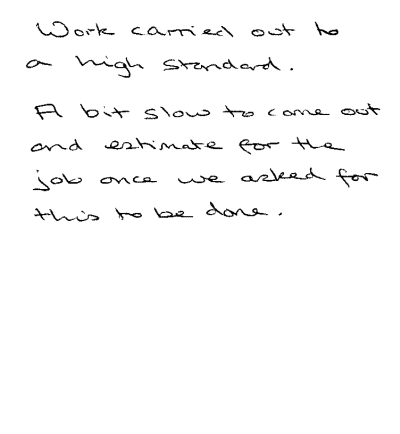 Work carried out to
a high standard.
A bit slow to come out
and estimate for the
job once we asked for
this to be done.